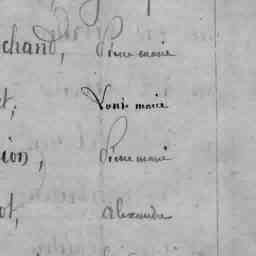 chand, Pierre marie
et, Louis marie
ion, Pierre marie
ot, alexandre